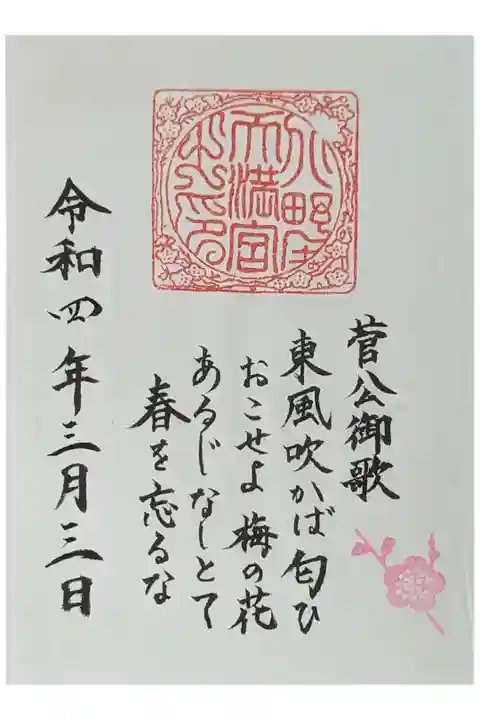 天満宮
菅公御歌
東風吹かば匂ひ
おこせよ梅の花
あるじなしとて
春を忘るな
令和四年三月三日